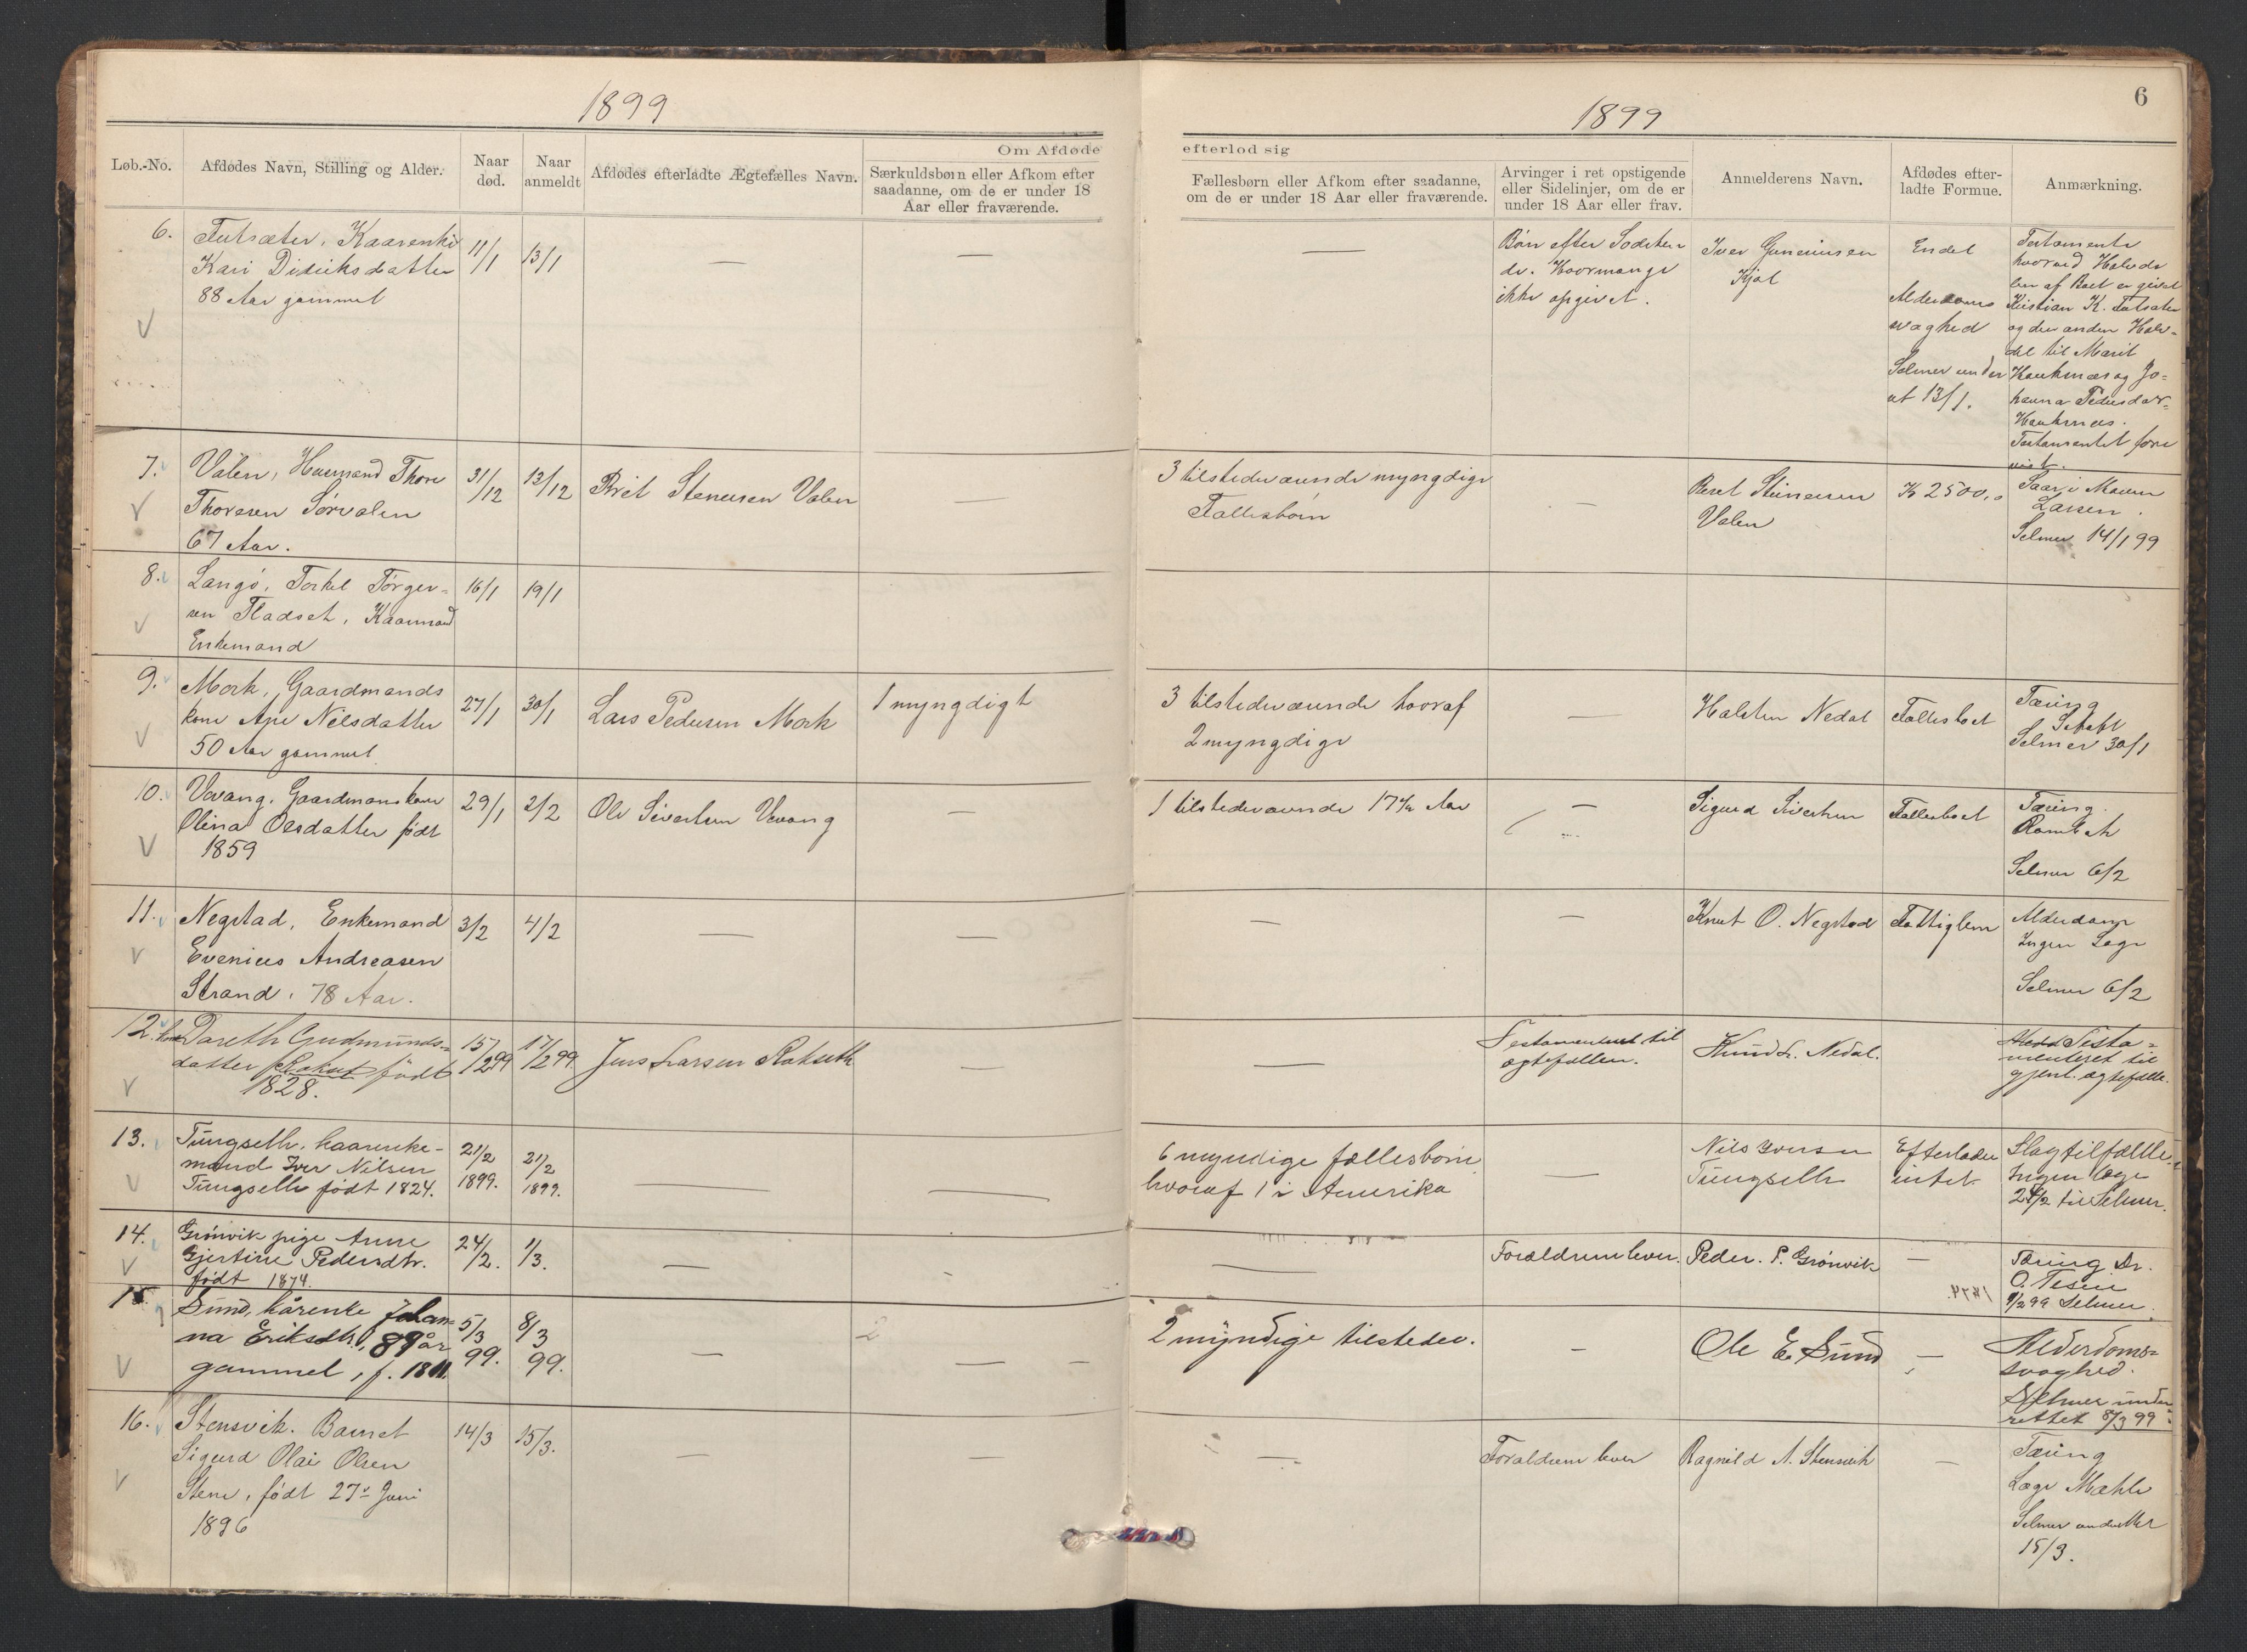 1899
1899
6
Om Afdøde
efterlod sig
Løb.-No.
Afdødes Navn, Stilling og Alder.
Naar
død.
Naar
anmeldt
Afdødes efterladte Ægtefælles Navn.
Særkuldsbørn eller Afkom efter
saadanne, om de er under 18
Aar eller fraværende.
Fællesbørn eller Afkom efter saadanne,
om de er under 18 Aar eller fraværende.
Arvinger i ret opstigende
eller Sidelinjer, om de er
under 18 Aar eller frav.
Anmelderens Navn.
Afdødes efter-
ladte Formue.
Anmærkning.
6.
Futsæter, Kaarenke
Kari Didriksdatter
88 Aar gammel
11/1
13/1
—
—
—
Børn efter Sødsken
de. Hvormange
ikke opgivet.
Iver
Kjøl
Endel
Alderdoms
svaghed
Selmer under
ret 13/1.
Testamente
hvorved Halvde
len af Boet er givet
Kristian K. Futsæter
og den anden Halv-
del til Marit
Haukenæs og Jo-
hanna Pedersdatr.
Haukenæs.
Testamentet fore
vist.
7.
Valen, Huusmand Thore
Thoresen Sørvalen
67 Aar.
31/12
13/12
Brit Stenersen Valen
—
3 tilstedeværende myngdige
Fællesbørn
—
Beret Steinersen
Valen
Kr 2500,0
Saar i Maven
Larsen.
Selmer 14/1 99
8.
Langø, Torkel Törger-
sen Fladset, Kaarmand
Enkemand
16/1
19/1
9.
Mork, Gaardmands
kone Ane Nilsdatter
50 Aar gammel
27/1
30/1
Lars Pedersen Mork
1 myngdigt
3 tilstedeværende hvoraf
2 myngdige
—
Halsten Nedal
Fællesboet
Tæring
Selmer 30/1
10.
Vevang, Gaardmanskone
Olina Olsdatter født
1859
29/1
2/2
Ole Sivertsen Vevang
—
1 tilstedeværende 17 1/2 Aar
—
Sigurd Sivertsen
Fællesboet
Tæring.
Rambek
Selmer 6/2
11.
Negstad, Enkemand
Evenius Andreasen
Strand, 78 Aar.
3/2
4/2
—
—
—
—
Knut O. Negstad
Fattiglem
Alderdom
Ingen Læge
Selmer 6/2
12.
Dareth Gudmunds-
datter Rakut født
1828.
15/2 99
17/2 99
Jens Larsen Rakuth
—
—
Testamentert til
ægtefællen.
Knud L. Nedal.
Testa-
menteret til
gjenl. ægtefælle.
13.
Tungseth, kaarenke-
mand Iver Nilsen
Tungseth født 1824.
21/2
1899.
21/2
1899.
—
—
6 myndige fællesbörn
hvoraf 1 i Amerika
—
Nils Iversen
Tungseth
Efterlader
intet
Slagtilfælde.
Ingen læge
24/2 til Selmer.
14.
Grönvik pige Anne
Gjertine Pedersdtr.
født 1874.
24/2.
1/3.
—
-
—
Forældrene lever.
Peder. P. Grönvik
—
Tæring Dr.
O. Tesen
1/2 99 Selmer.
15.
Sund, kårenke Johan-
na Eriksdtr., 89 år
gammel, f. 1811.
5/3
99.
8/3
99.
—
2
—
2 myndige tilstedev.
-
Ole E. Sund
—
Alderdoms-
svaghed.
Selmer under
rettet 8/3 99.
16.
Stensvik. Barnet
Sigurd Olai Olsen
Stene, født 27de Juni
1896
14/3
15/3.
—
—
—
Forældrene lever
Ragnild A. Stensvik
—
Tæring
Læge Mæhle
Selmer underettet
15/3.